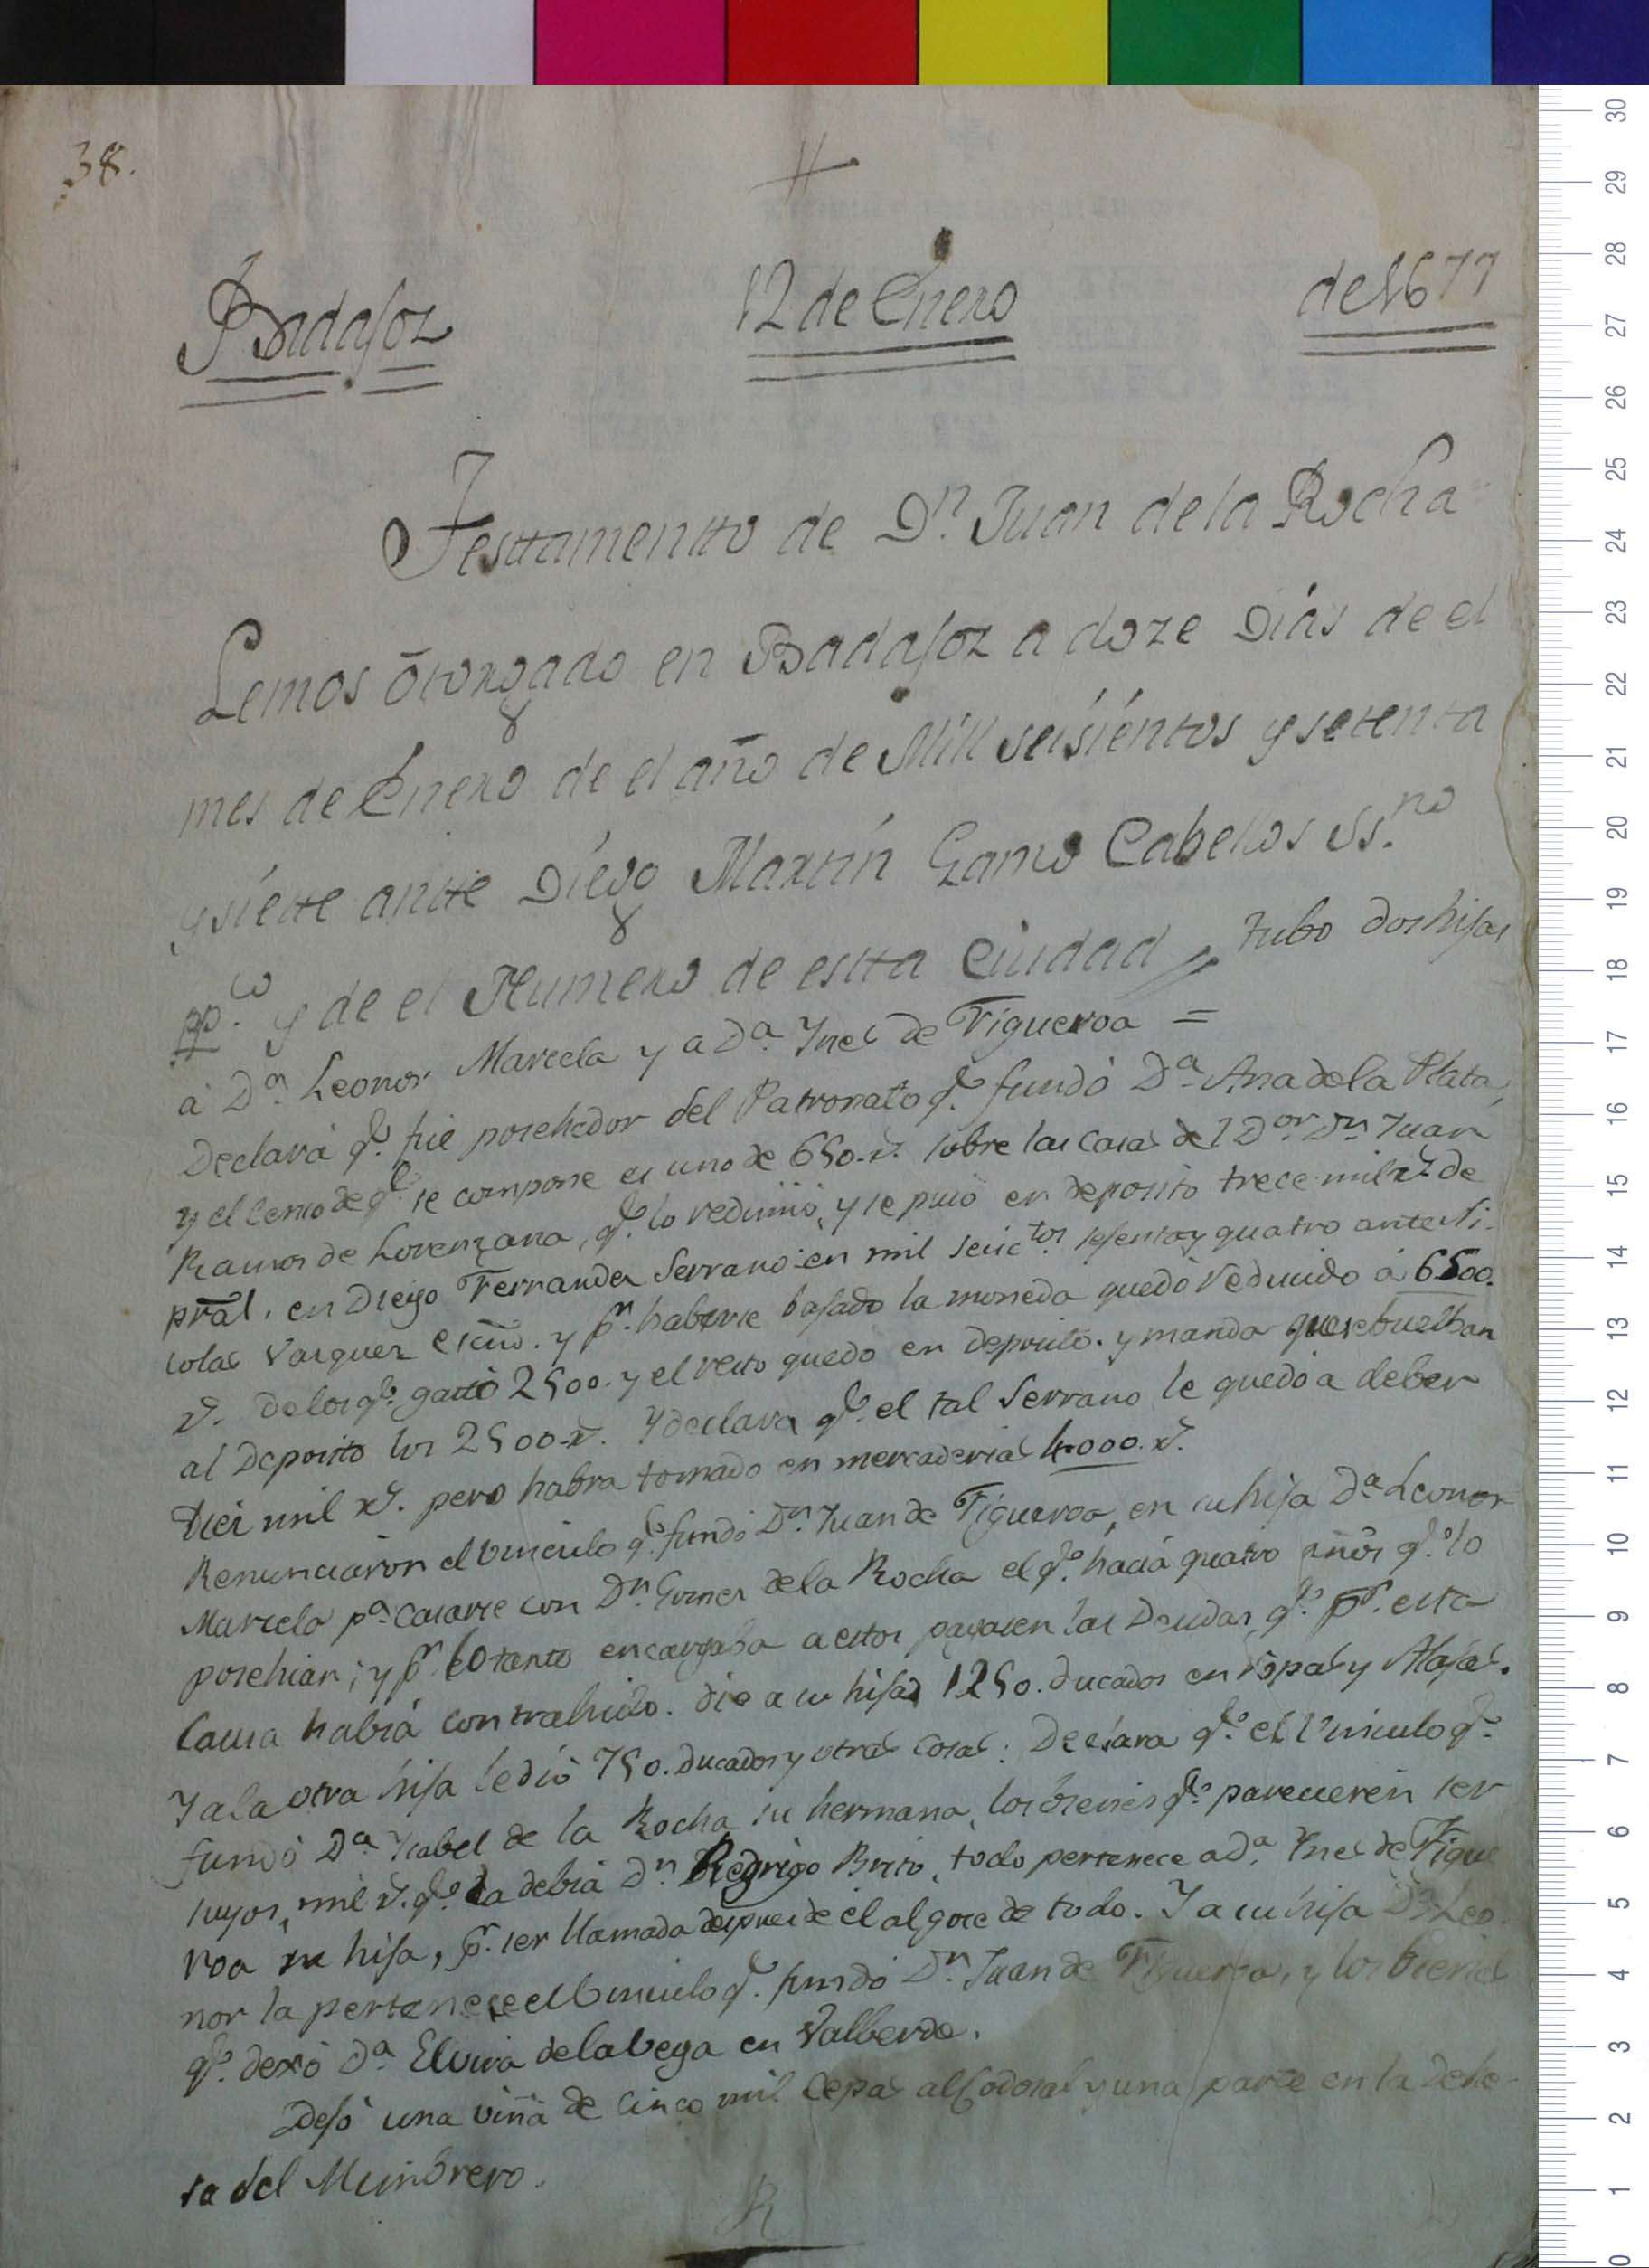 38.
Badajoz 12 de Enero de 1677
Testtamentto de Dn. Juan de la Rocha
Lemos otorgado en Badajoz a doze Dias de el
mes de Enero de el año de Mill seisientos y setenta
y siette antte Diego Martin Gamo Cabellos Ss.no
pp.co y de el Numero de estta Ciudad // tubo dos hijas
à Da. Leonor Marcela y a Da. Ynes de Figueroa =
Declara qe. fue posehedor del Patronato qe. fundó Da. Ana de la Plata,
y el censo de qe. se compone es uno de 650 rs. sobre las casas del Dor. Dn. Juan
Ramos de Lorenzana, qe. lo redimió, y se puso en deposito trece mil rs. de
pral. en Diego Fernandez Serrano en mil seisctos. sesenta y quatro ante Ni-
colas Vazquez esno. y pr. haberse bajado la moneda quedó reducido á 6500.
rs. De los qe. gastó 2500. y el resto quedo en deposito. y manda que se buelban
al Deposito los 2500 rs. Y declara qe. el tal Serrano le quedó a deber
Diez mil rs. pero habra tomado en mercaderias 4000. rs.
Renunciaron el Vinculo qe. fundó Dn. Juan de Figueroa, en su hija Da. Leonor
Marcela pa. casarse con Dn. Gomez de la Rocha el qe. hacia quatro años qe. lo
posehian; y pr. lo tanto encargaba a estos pagasen las Deudas qe. pr. esta
causa habiá contrahido. dio a su hija 1250. ducados en ropas y Alajas.
Y a la otra hija le dió 750. ducados y otras cosas: Declara qe. el Vinculo qe.
fundó Da. Ysabel de la Rocha su hermana, los bienes qe. parecieren ser
suyos, mil rs. qe. la debia Dn. Rodrigo Brito, todo pertenece a Da. Ynes de Figue
roa su hija, pr. ser llamada despues de él al goce de todo. Y a su hija Da. Leo
nor la pertenece el Vinculo qe. fundó Dn. Juan de Figueroa, y los bienes
qe. dexó Da. Elvira de la Vega en Valberde.
Dejó una viña de cinco mil cepas al Codosal y una parte en la Dehe-
sa del Mimbrero.
R